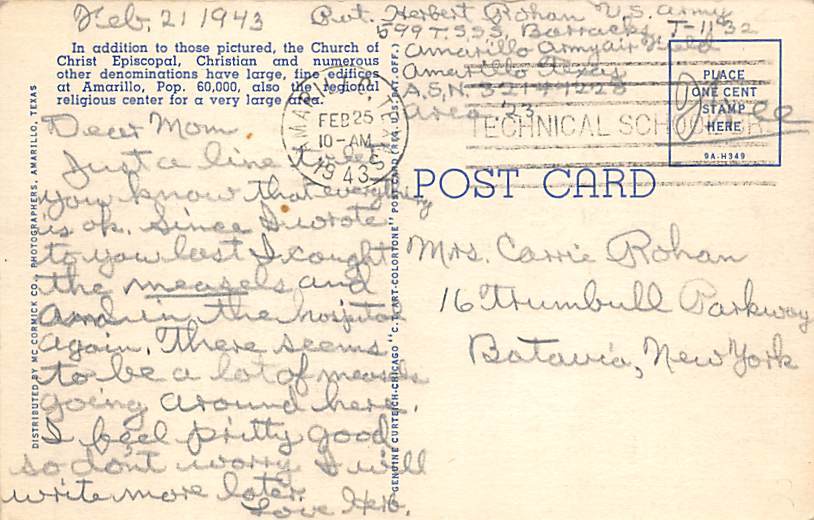 Feb. 21 1943
Pvt. Herbert Rohan U.S. Army
599 T.S.S. Barracks T-1132
Amarillo Army air Field
Amarillo Texas
A.S.N. 32141228
area 23
In addition to those pictured, the Church of
Christ Episcopal, Christian and numerous
other denominations have large, fine edifices
at Amarillo, Pop. 60,000, also the regional
religious center for a very large area.
AMARILLO, TEXAS
FEB 25
10-AM
1943
TECHNICAL SCHOOL
PLACE
ONE CENT
STAMP
HERE
9A-H349
Free
POST CARD
Dear Mom
Just a line to let
you know that everything
is ok. Since I wrote
to you last I cought
the measels and
am in the hospital
again. There seems
to be a lot of measels
going around here.
I feel pritty good
so don't worry I will
write more later.
Love Herb.
Mrs. Carrie Rohan
16 Trumbull Parkway
Batavia, New York
DISTRIBUTED BY MC CORMICK CO., PHOTOGRAPHERS, AMARILLO, TEXAS
GENUINE CURTEICH-CHICAGO "C.T. ART-COLORTONE" POST CARD (REG. U.S. PAT. OFF.)